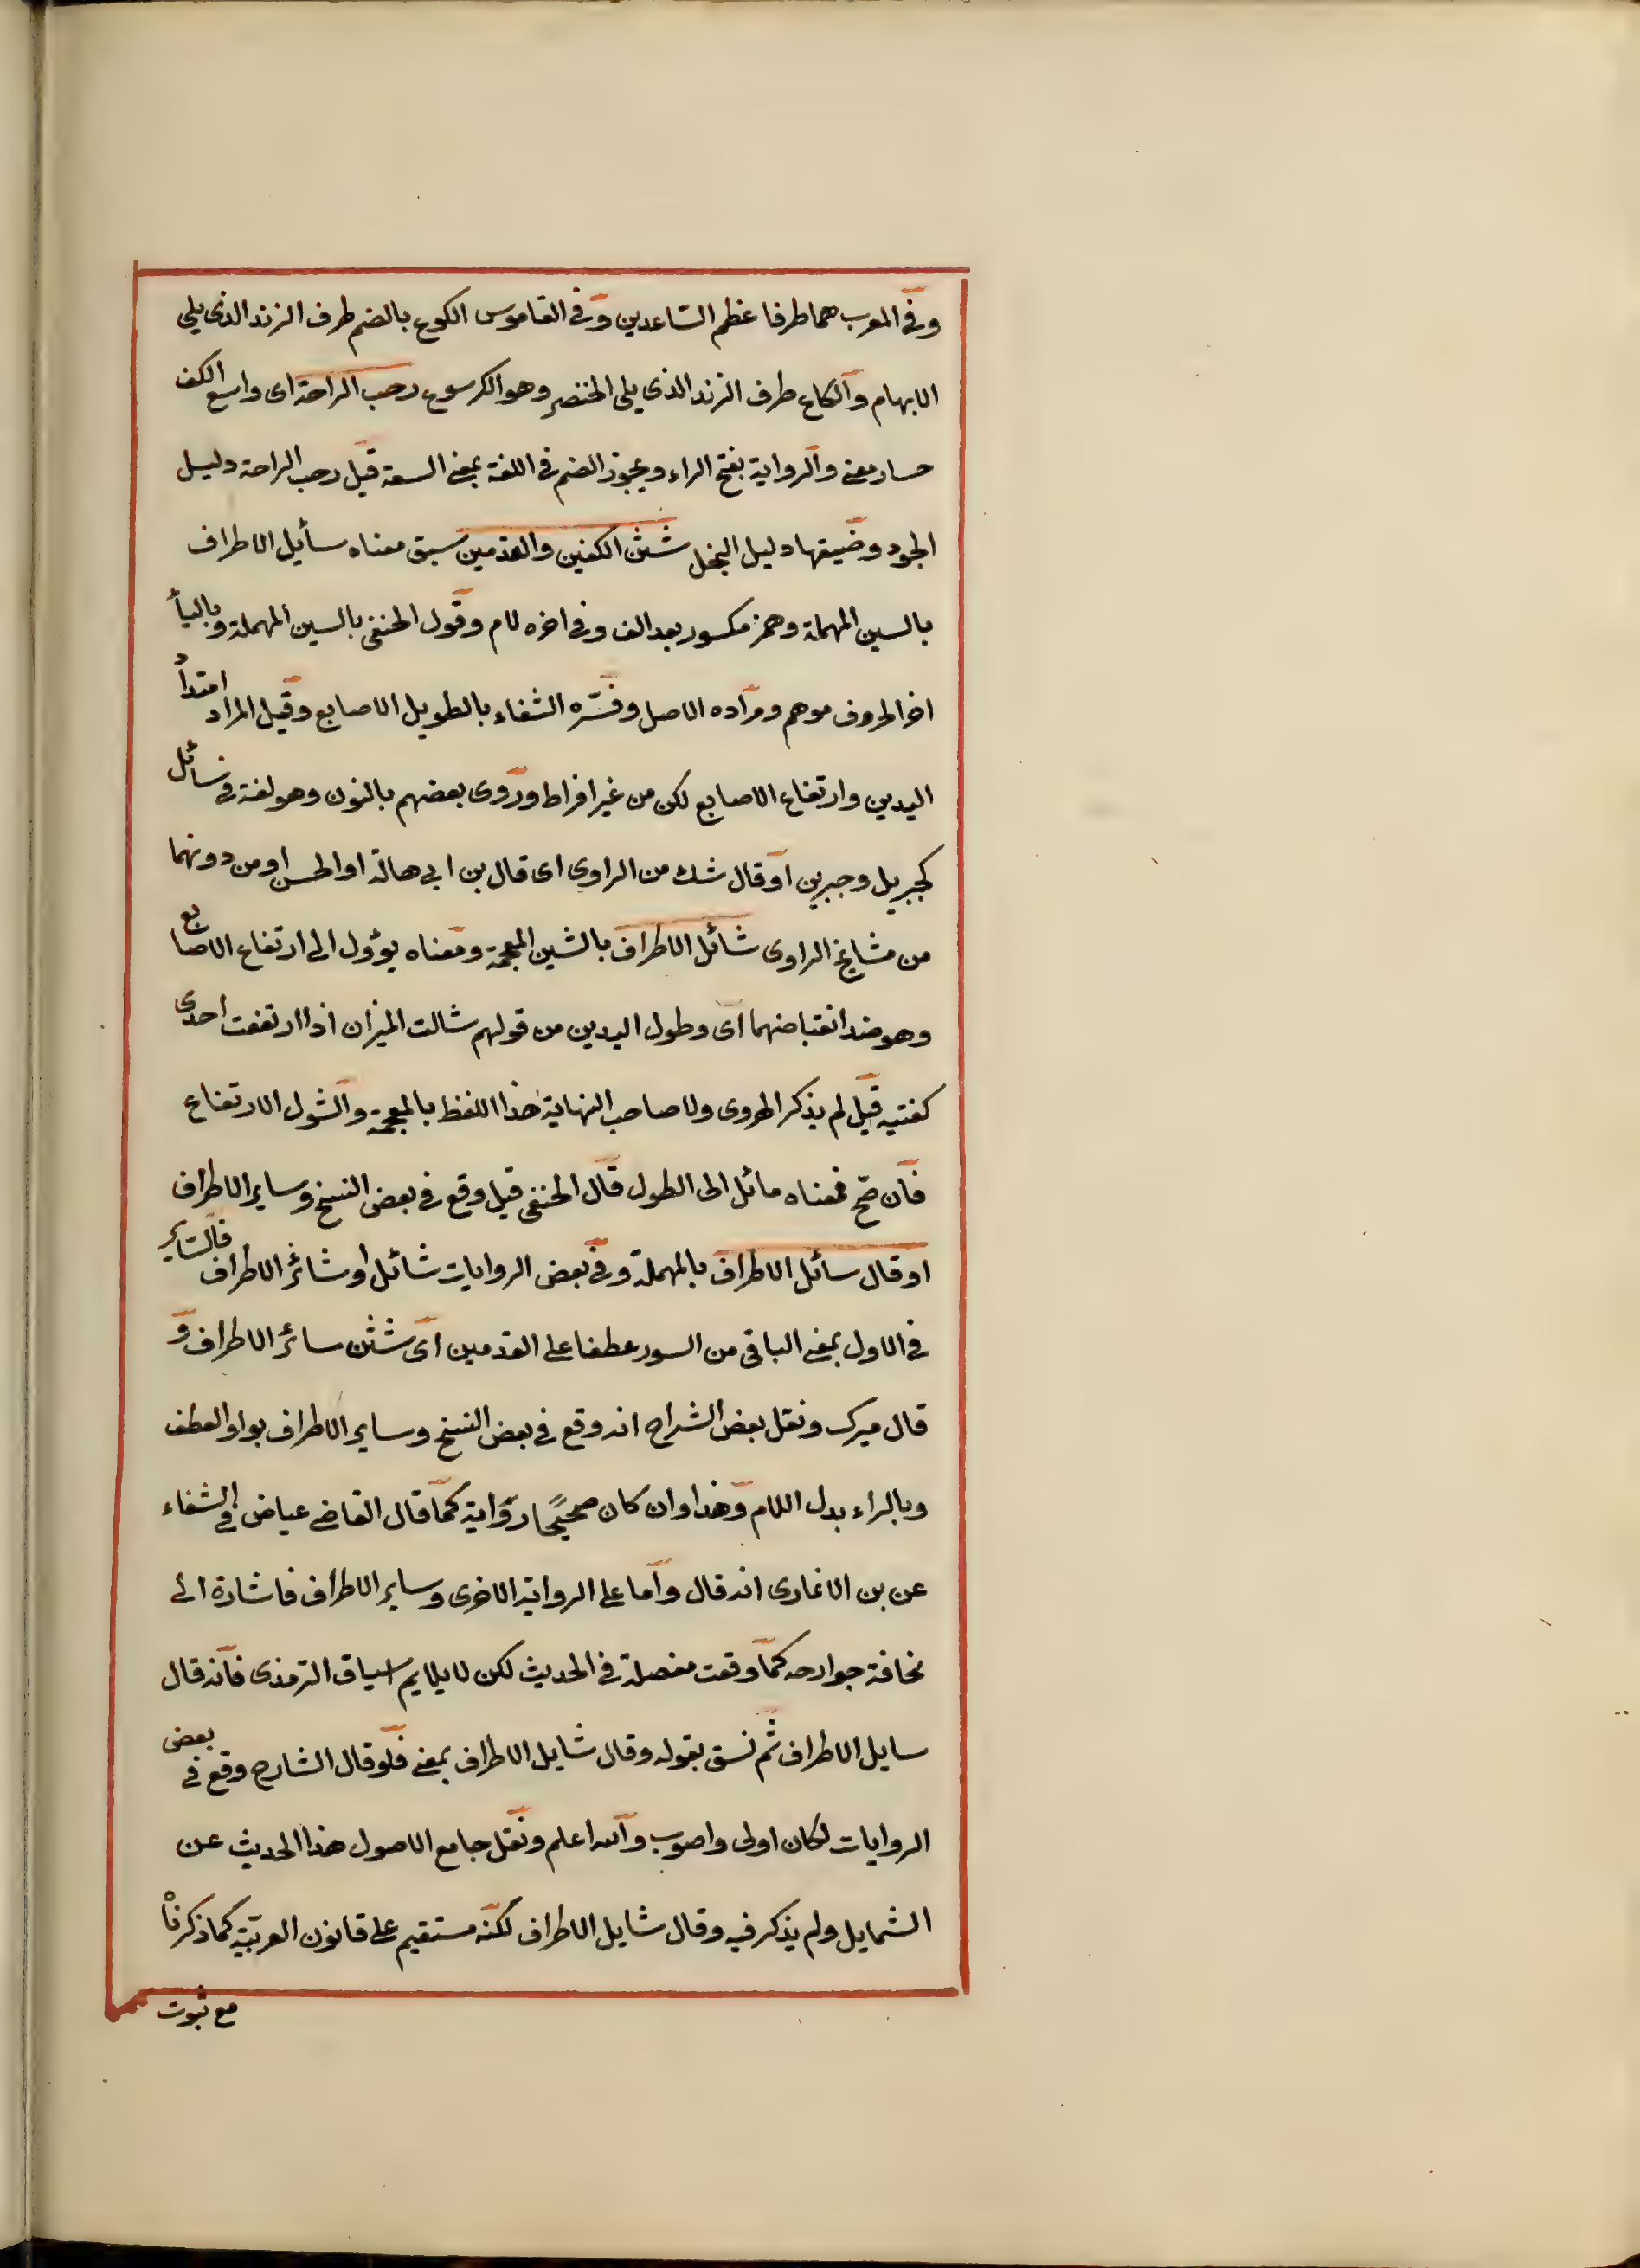 وفي المعرب هما طرفا عظم الساعدين وفي القاموس الكوع بالضم طرف الزند الذي يلي
الابهام والكاع طرف الزند الذي يلي الخنصر وهو الكرسوع رحب الراحة اى واسع الكف
حسا ومعنى والرواية بفتح الراء ويجوز الضم في اللغة بمعنى السعة قيل رحب الراحة دليل
الجود وضيقها دليل البخل شثن الكفين والقدمين سبق معناه سأيل الاطراف
بالسين المهملة وهمز مكسور بعد الف وفي اخره لام وقول الحنفي بالسين المهملة وبالياء
اخر الحروف موهم ومراده الاصل وفسّره الشفاء بالطويل الاصابع وقيل المراد امتداد
اليدين وارتفاع الاصابع لكن من غير افراط وروى بعضهم بالنون وهو لغة في سائل
كجبريل وجبرين او قال شك من الراوى اى قال بن ابي هالة او الحسن او من دونهما
من مشايخ الراوى شائل الاطراف بالشين المعجمة ومعناه يؤول الى ارتفاع الاصابع
وهو ضد انقباضهما اى وطول اليدين من قولهم شالت الميزان اذا ارتفعت احدى
كفتيه قيل لم يذكر الهروى ولا صاحب النهاية هذا اللفظ بالمعجمة والشول الارتفاع
فان صح فمعناه مائل الى الطول قال الحنفي قيل وقع في بعض النسخ وساير الاطراف
او قال سائل الاطراف بالمهملة وفي بعض الروايات شائل او شائر الاطراف فالساير
في الاول بمعنى الباقي من السور عطفا على القدمين اى شثن سائر الاطراف و
قال ميرك ونقل بعض الشراح انه وقع في بعض النسخ وساير الاطراف بواو العطف
وبالراء بدل اللام وهذا وان كان صحيحًا رواية كما قال القاضى عياض في الشفاء
عن بن الانبارى انه قال واما على الرواية الاخرى وساير الاطراف فاشارة الى
نخافة جوارحه كما وقعت مفصلة في الحديث لكن لا يلايم سياق الترمذى فانه قال
سايل الاطراف ثم نسق بقوله وقال شايل الاطراف بمعنى فلو قال الشارح وقع في بعض
الروايات لكان اولى واصوب والله اعلم ونقل جامع الاصول هذا الحديث عن
الشمايل ولم يذكر فيه وقال شايل الاطراف لكنه مستقيم على قانون العربيّة كما ذكرناه
مع ثبوت